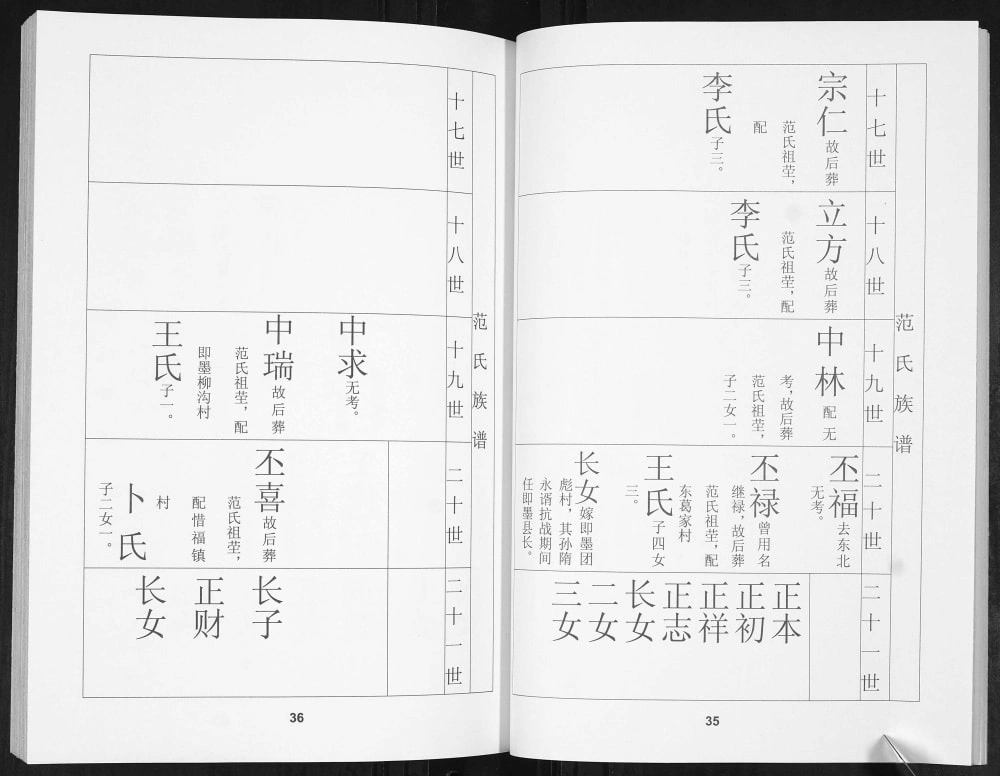 范氏族谱
十七世
宗仁故后葬
范氏祖茔，
配
李氏子三。
十八世
立方故后葬
范氏祖茔，配
李氏子三。
十九世
中林配无
考，故后葬
范氏祖茔，
子二女一。
二十世
丕福去东北
无考。
丕禄曾用名
继禄，故后葬
范氏祖茔，配
东葛家村
王氏子四女
三。
长女嫁即墨团
彪村，其孙隋
永谞抗战期间
任即墨县长。
二十一世
正本
正初
正祥
正志
长女
二女
三女
35
范氏族谱
十七世
十八世
十九世
中求无考。
中瑞故后葬
范氏祖茔，配
即墨柳沟村
王氏子一。
二十世
丕喜故后葬
范氏祖茔，
配惜福镇
村
卜氏
子二女一。
二十一世
长子
正财
长女
36